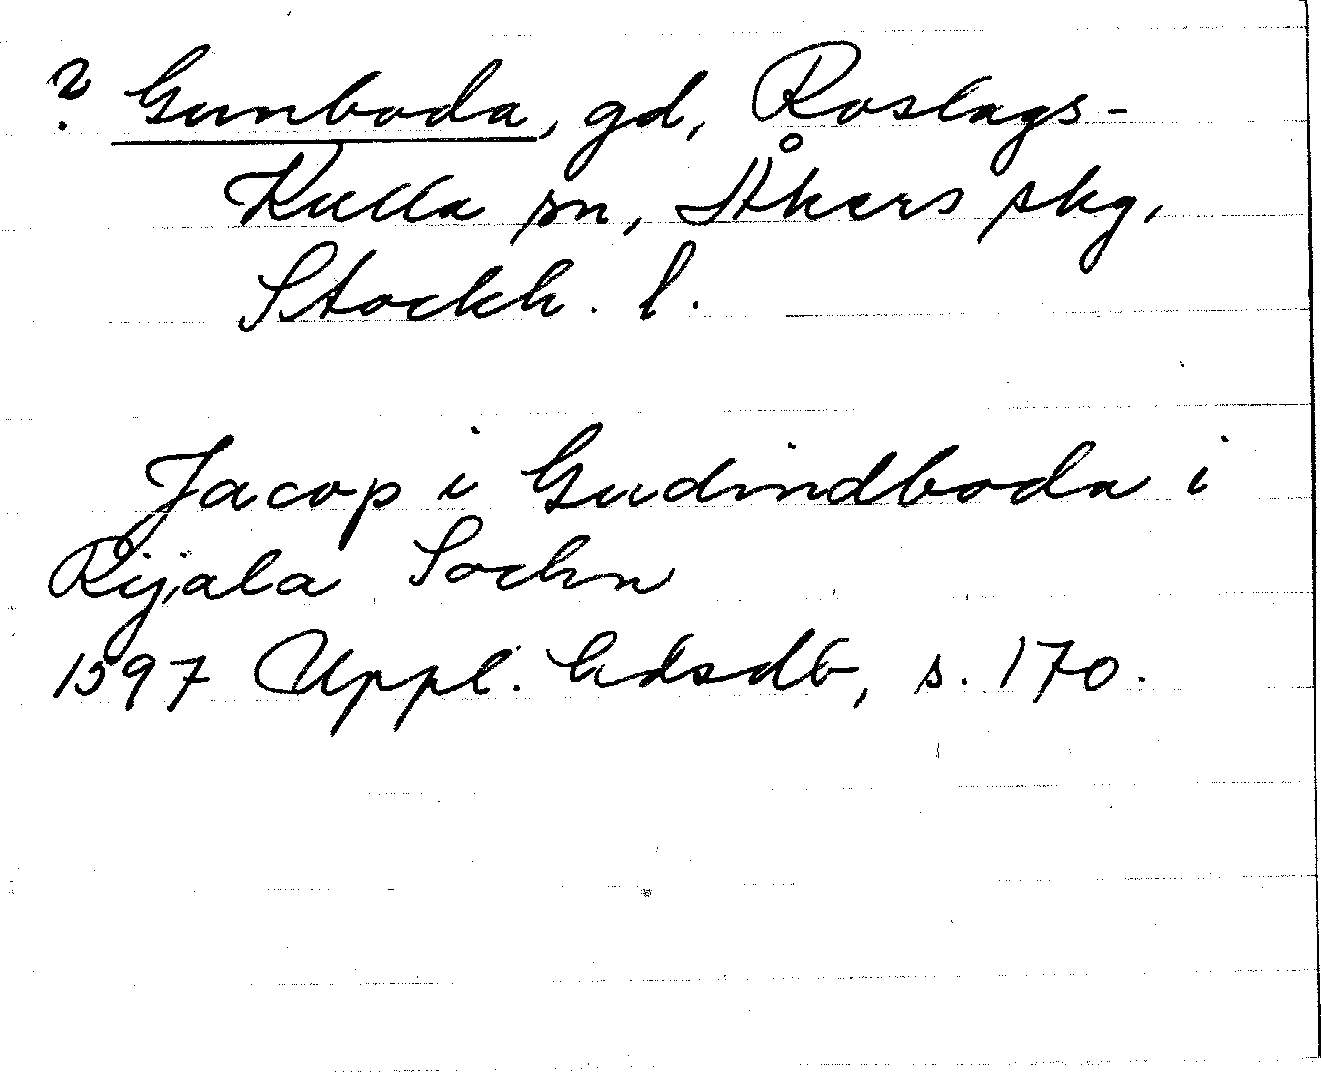 ? Gunboda, gd, Roslags-
Kulla sn, Åkers skg,
Stockh. l.
Jacop i Gudindboda i
Rijala Sochn
1597 Uppl. hdsdb, s. 170.